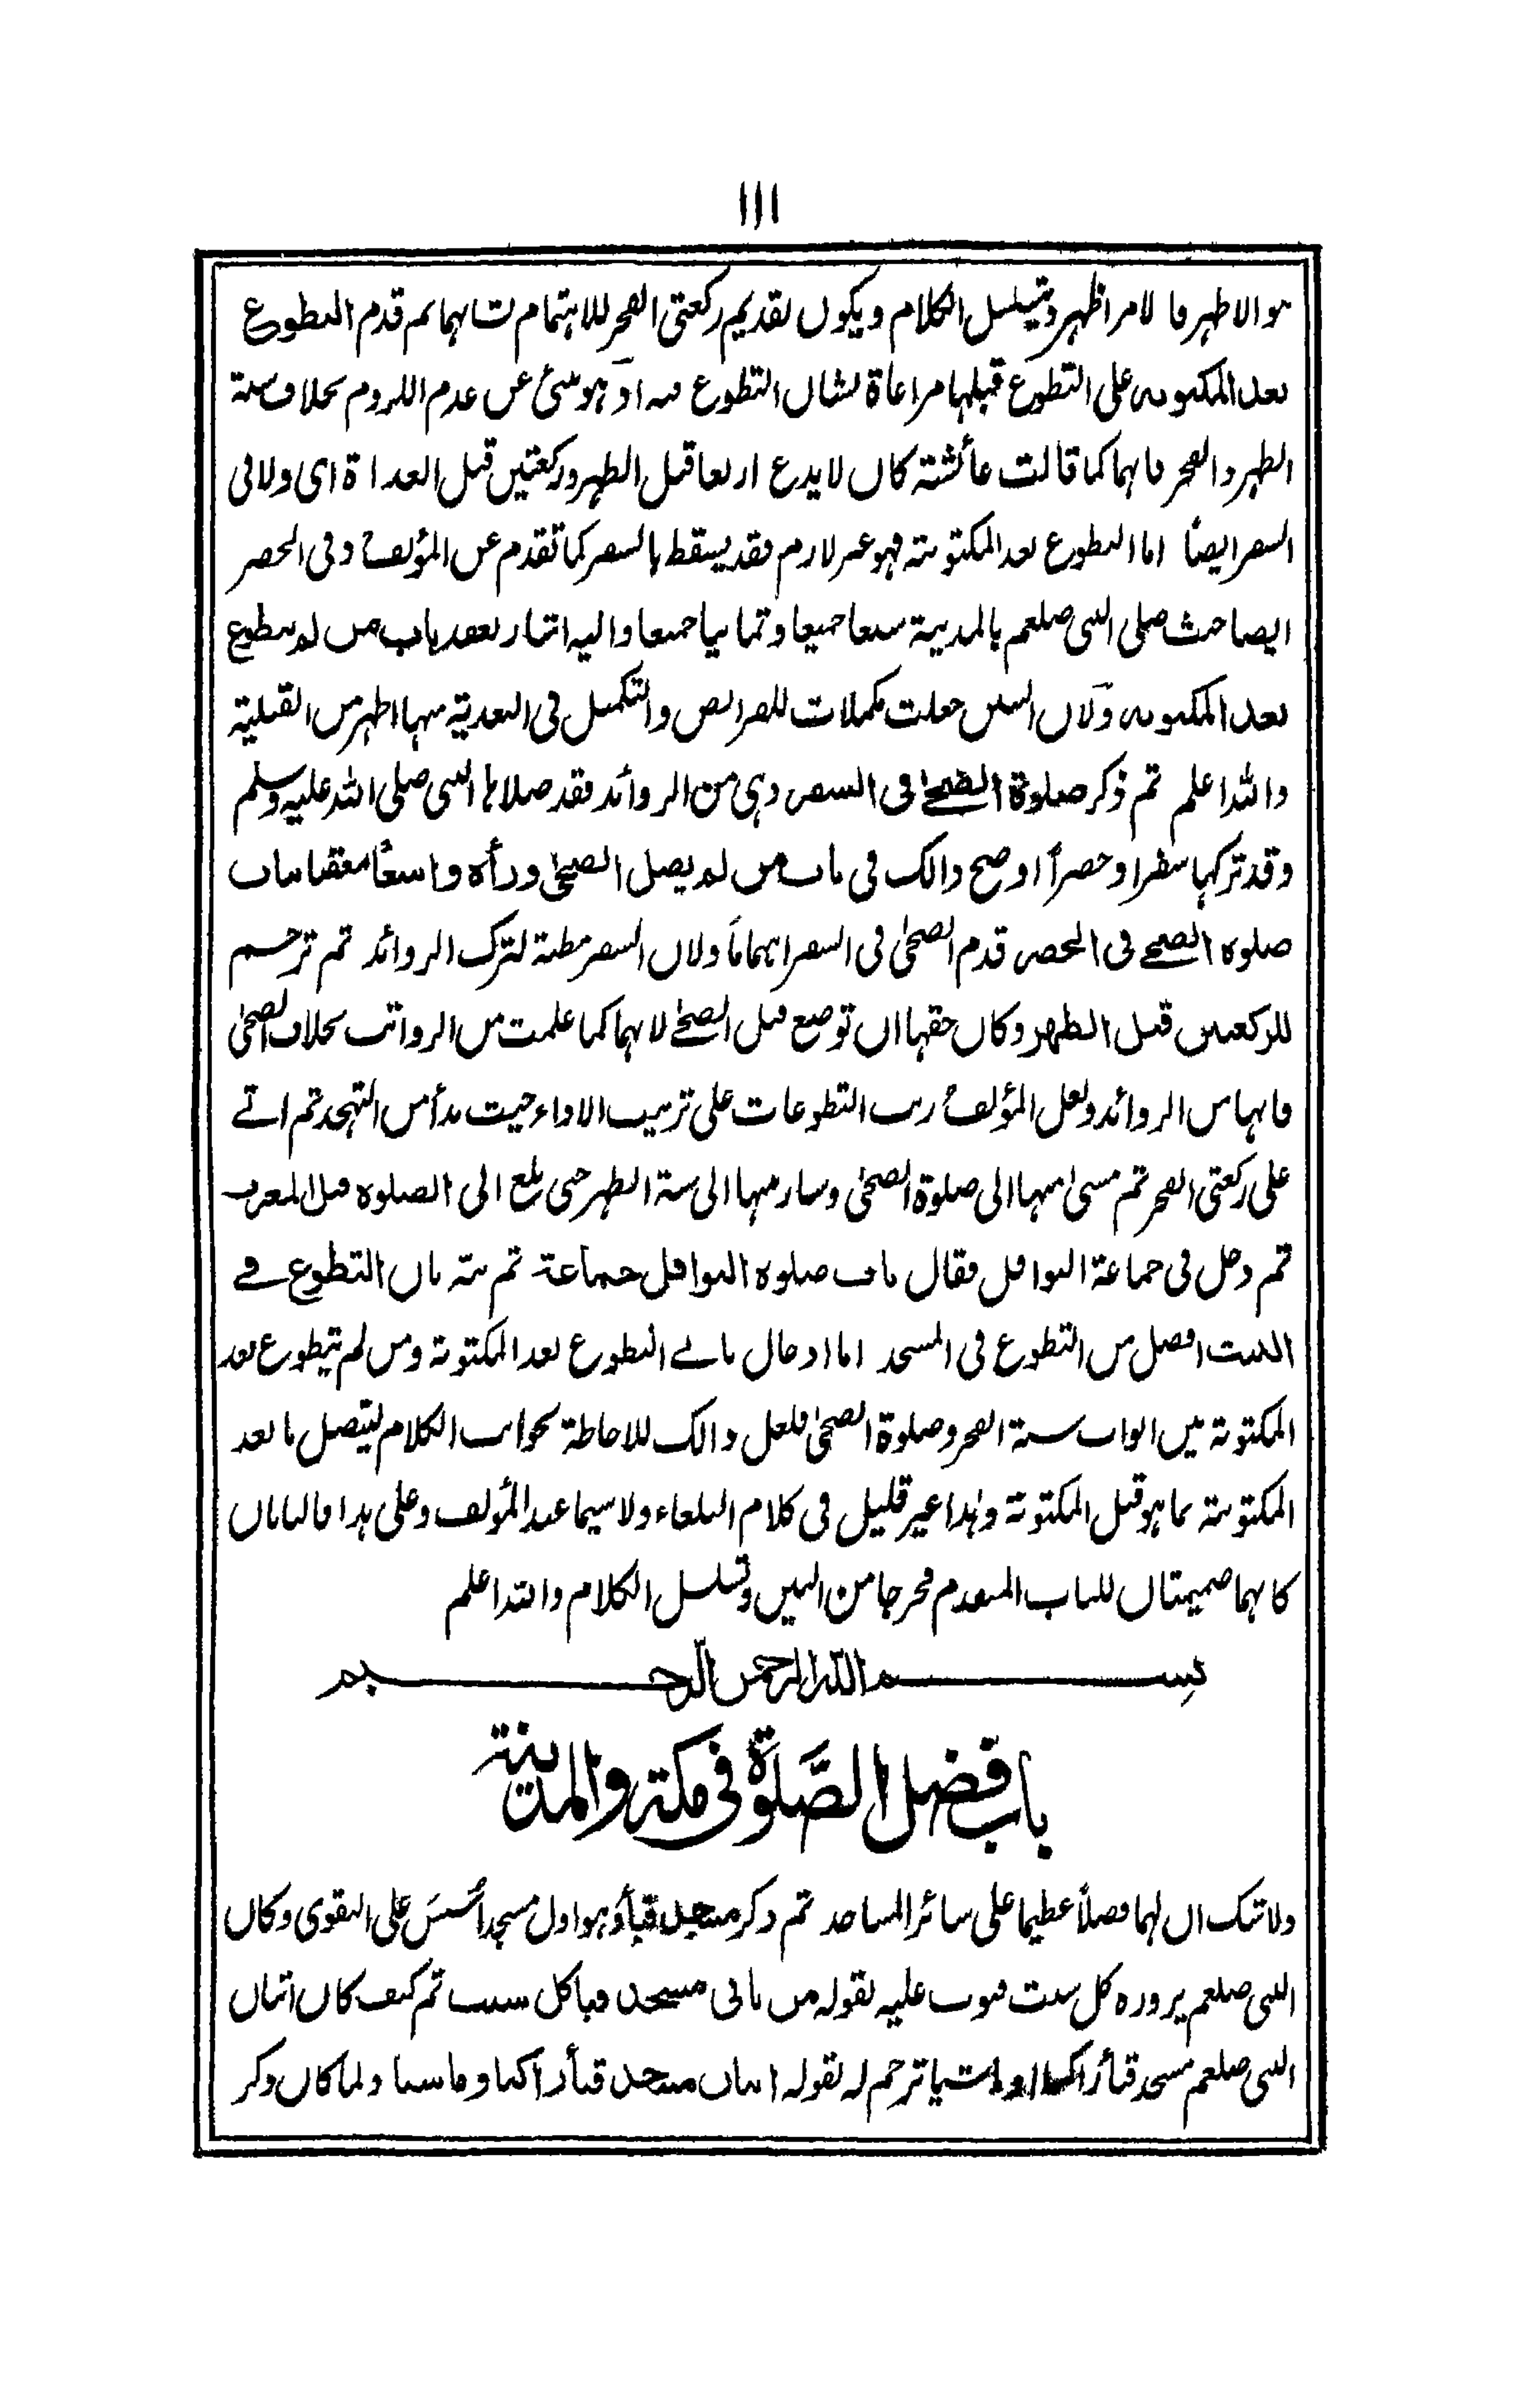 ١١١
هو الاظهر فالامر اظهر ويتسلسل الكلام ويكون تقديم ركعتى الفجر للاهتمام بشانهما ثم قدم التطوع
بعد المكتوبه على التطوع قبلها مراعاة لشان التطوع فيه اذ هو ينبئ عن عدم اللزوم بخلاف سنة
الظهر والفجر فانهما كما قالت عائشة كان لا يدع اربعا قبل الظهر وركعتين قبل الغداة اى ولا فى
السفر ايضا اما التطوع بعد المكتوبة فهو غير لازم فقد يسقط بالسفر كما تقدم عن المؤلف وفى الحضر
ايضا حيث صلى النبى صلعم بالمدينة سبعا جميعا وثمانيا جميعا واليه اشار بعقد باب من لم يتطوع
بعد المكتوبه ولان السنن جعلت مكملات للفرائض والتكميل فى البعدية منها اظهر من القبلية
والله اعلم ثم ذكر صلوة الضحى فى السفر وهى من الزوائد فقد صلاها النبى صلى الله عليه وسلم
وقد تركها سفرا وحضراً اوضح ذالك فى باب من لم يصل الضحى ورأه واسعاً معقبا بباب
صلوة الضحى فى الحضر قدم الضحى فى السفر اهتماماً ولان السفر مظنة لترك الزوائد ثم ترجم
للركعتين قبل الظهر وكان حقها ان توضع قبل الضحى لانهما كما علمت من الرواتب بخلاف الضحى
فانها من الزوائد ولعل المؤلف رتب التطوعات على ترتيب الاداء حيث بدأ من التهجد ثم اتى
على ركعتى الفجر ثم مشى منها الى صلوة الضحى وسار منها الى سنة الظهر حتى بلغ الى الصلوة قبل المغرب
ثم دخل فى جماعة النوافل فقال باب صلوة النوافل جماعة ثم نبه بان التطوع فى
البيت افضل من التطوع فى المسجد اما ادخال بابى التطوع بعد المكتوبة ومن لم يتطوع بعد
المكتوبة بين ابواب سنة الفجر وصلوة الضحى فلعل ذالك للاحاطة بجوانب الكلام ليتصل ما بعد
المكتوبة بما هو قبل المكتوبة وهذا غير قليل فى كلام البلغاء ولا سيما عند المؤلف وعلى هذا فالبابان
كانهما ضميمتان للباب المتقدم فخرجا من البين وتسلسل الكلام والله اعلم
بسم الله الرحمن الرحيم
باب فضل الصَّلوٰة فى مكة والمدينة
ولا شك ان لهما فضلاً عظيما على سائر المساجد ثم ذكر مسجد قباء وهو اول مسجد أُسِّسَ على التقوى وكان
النبى صلعم يزوره كل سبت فبوب عليه بقوله من ياتى مسجد قبا كل سبت ثم كيف كان اتيان
النبى صلعم مسجد قباء راكبا او ماشيا ترجم له بقوله اتيان مسجد قباء راكبا وماشيا ولما كان ذكر